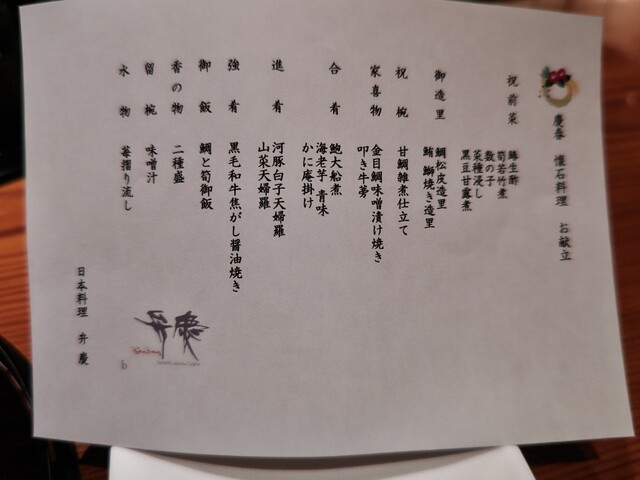 慶春 懐石料理 お献立
祝前菜
蜂生酢
筍若竹煮
数の子
菜種浸し
黒豆甘露煮
御造里
鯛松皮造里
鮪 鰤焼き造里
祝椀
甘鯛雑煮仕立て
家喜物
金目鯛味噌漬け焼き
叩き牛蒡
合肴
鮑大船煮
海老芋 青味
かに庵掛け
進肴
河豚白子天婦羅
山菜天婦羅
強肴
黒毛和牛焦がし醤油焼き
御飯
鯛と筍御飯
香の物
二種盛
留椀
味噌汁
水物
苺摺り流し
弁慶
日本料理 弁慶